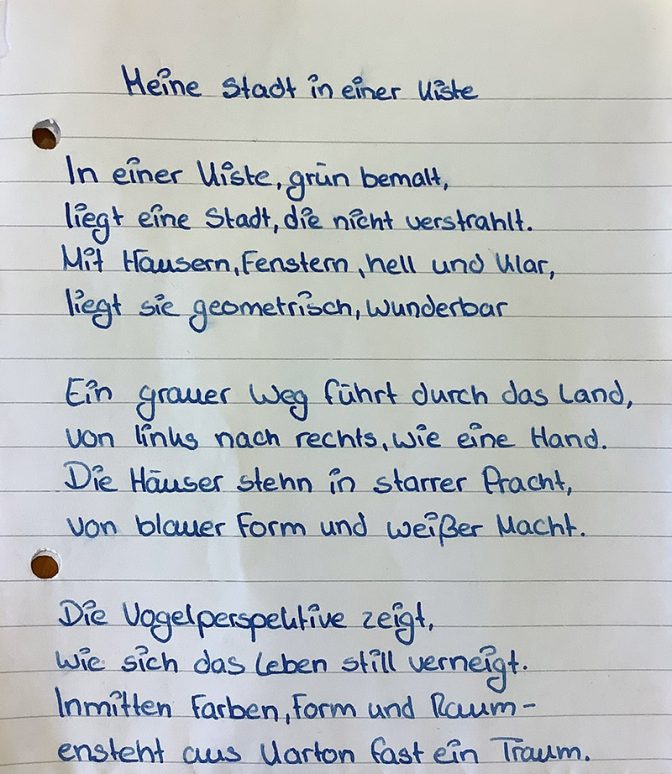 Meine Stadt in einer Kiste
In einer Kiste, grün bemalt,
liegt eine Stadt, die nicht verstrahlt.
Mit Häusern, Fenstern, hell und klar,
liegt sie geometrisch, wunderbar
Ein grauer Weg führt durch das Land,
von links nach rechts, wie eine Hand.
Die Häuser stehn in starrer Pracht,
von blauer Form und weißer Macht.
Die Vogelperspektive zeigt,
wie sich das Leben still verneigt.
Inmitten Farben, Form und Raum-
ensteht aus Karton fast ein Traum.